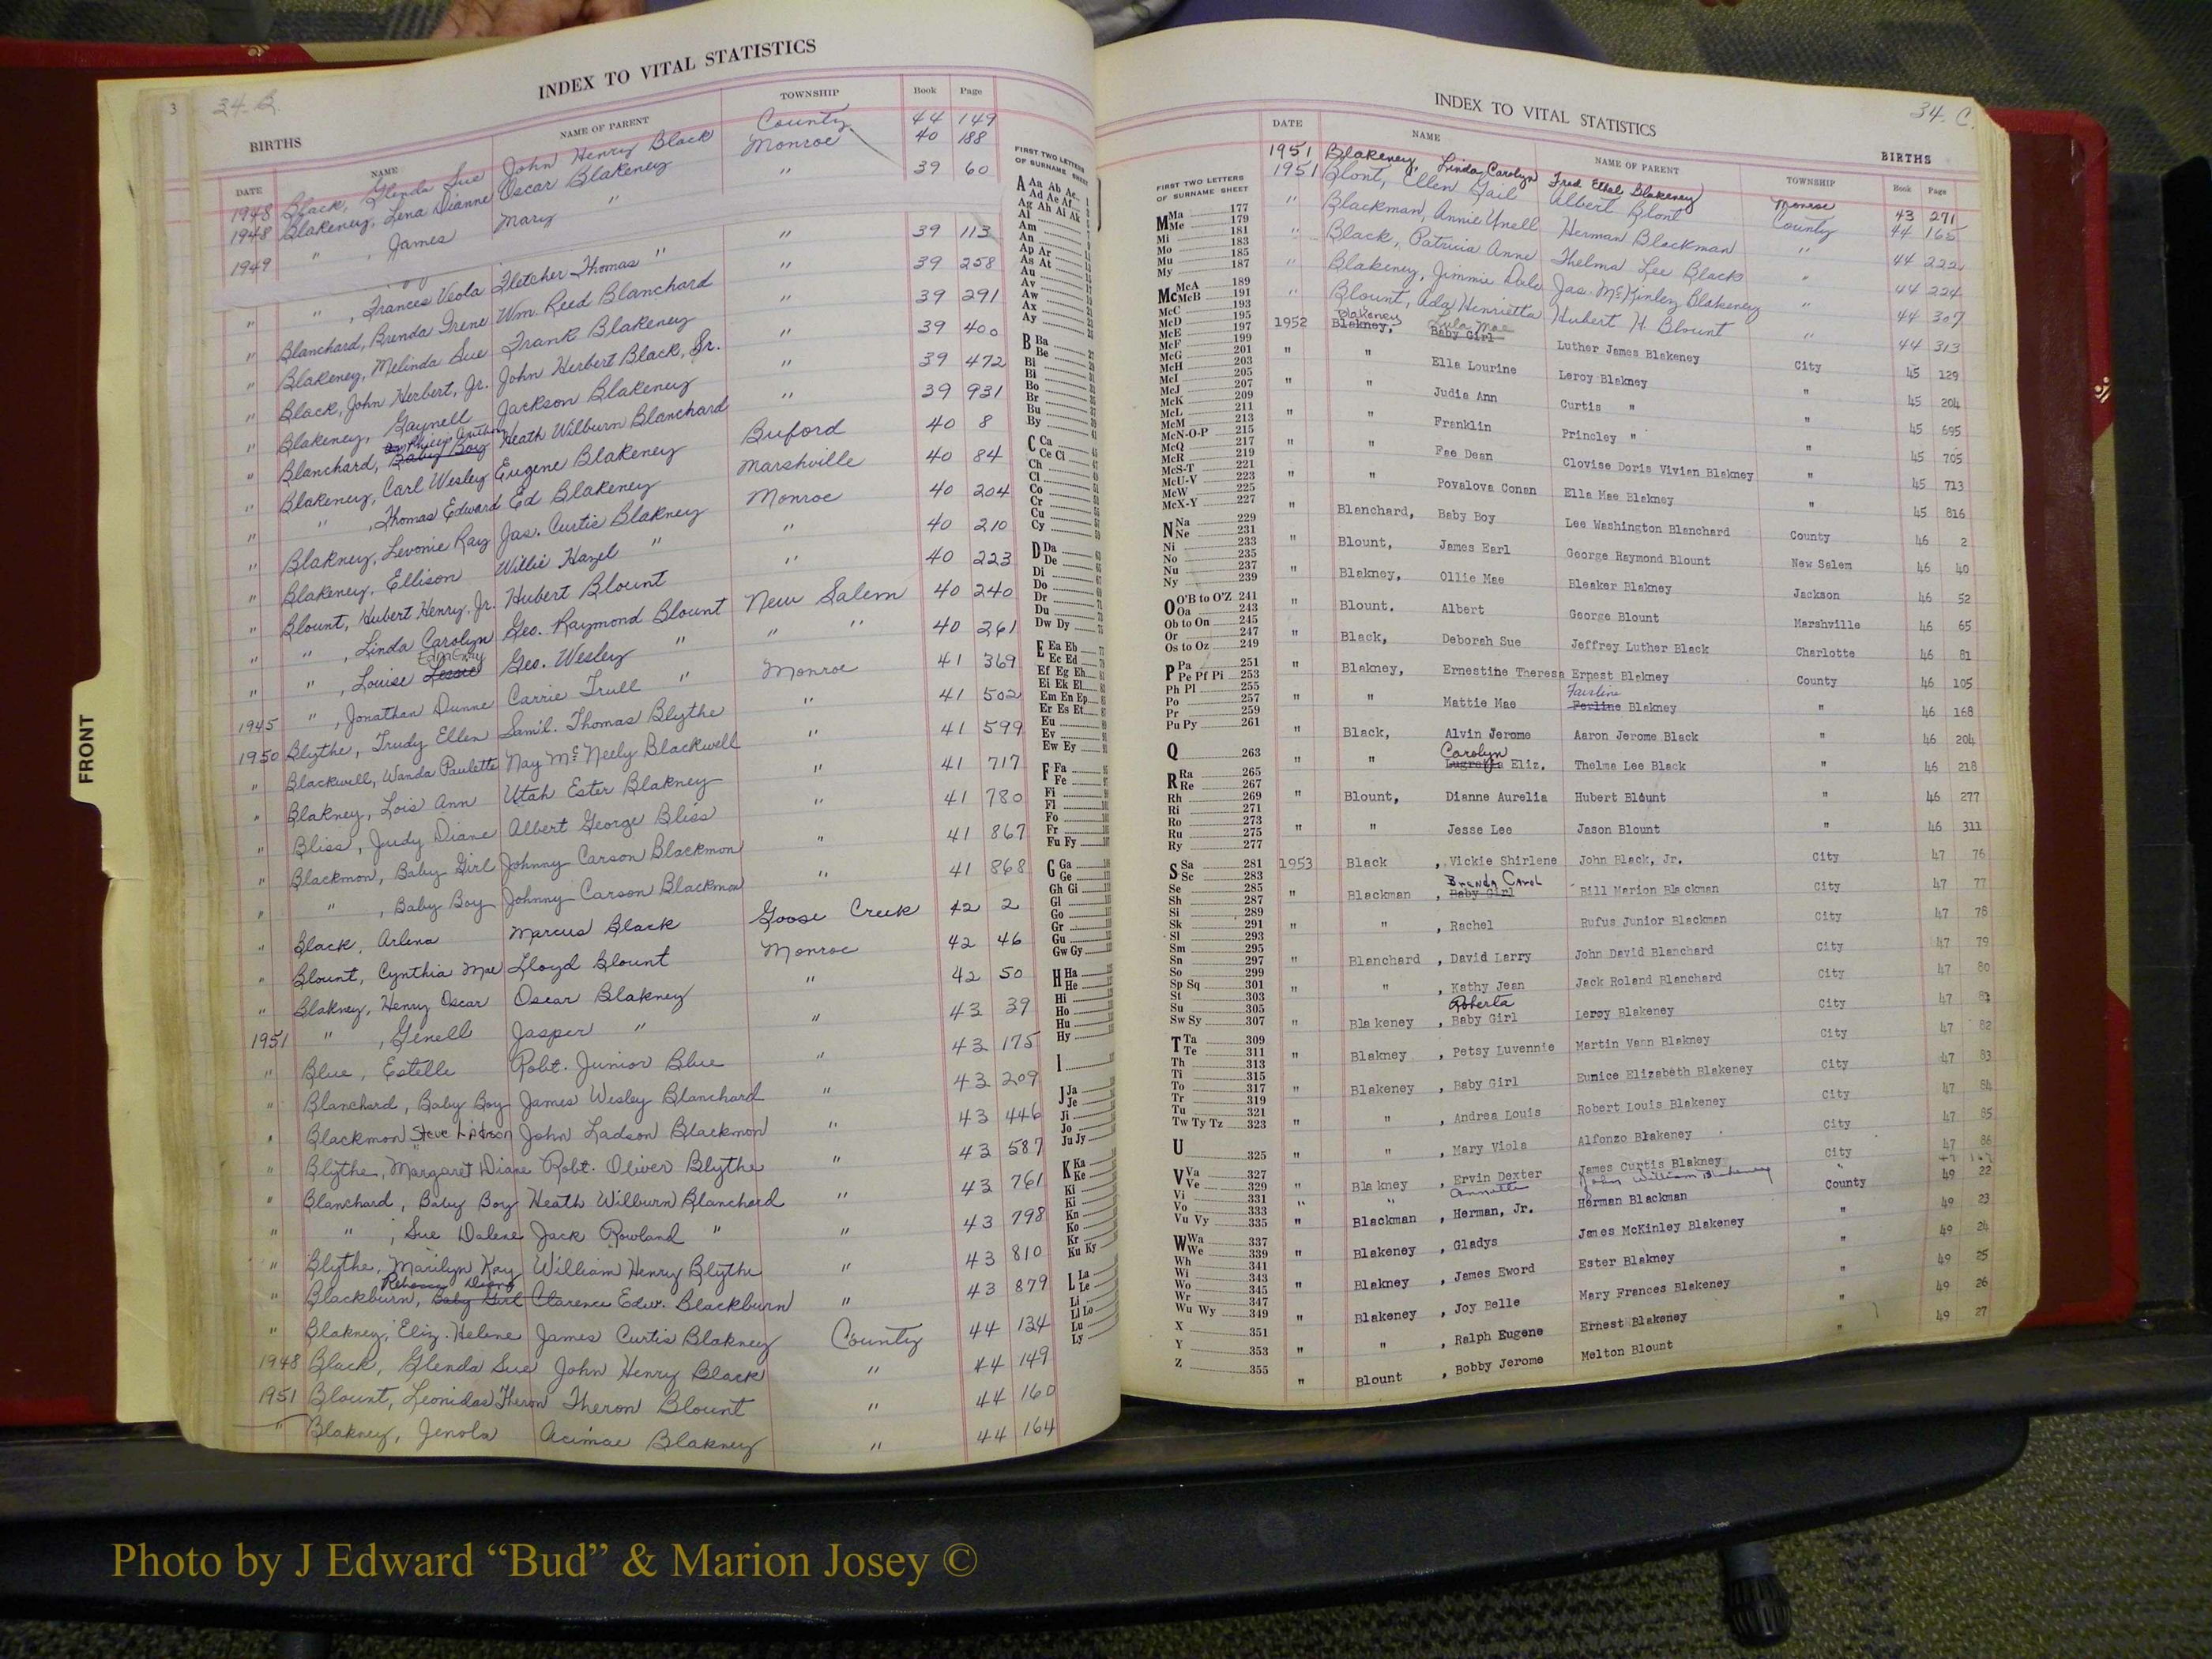 INDEX TO VITAL STATISTICS
3 34-B.
BIRTHS
DATE NAME NAME OF PARENT TOWNSHIP Book Page
1948 Black, Glenda Sue John Henry Black County 44 149
1948 Blakeney, Lena Dianne Oscar Blakeney Monroe 40 188
1949 " , James Mary " " 39 60
" " , Frances Veola Fletcher Thomas " " 39 113
" Blanchard, Brenda Irene Wm. Reed Blanchard " 39 258
" Blakeney, Melinda Sue Frank Blakeney " 39 291
" Black, John Herbert, Jr. John Herbert Black, Sr. " 39 400
" Blakeney, Gaynell Jackson Blakeney " 39 472
" Blanchard, Baby Boy Heath Wilburn Blanchard " 39 931
" Blakeney, Carl Wesley Eugene Blakeney Buford 40 8
" " , Thomas Edward Ed Blakeney Marshville 40 84
" Blakney, Levonie Ray Jas. Curtis Blakney Monroe 40 204
" Blakeney, Ellison Willie Hazel " " 40 210
" Blount, Hubert Henry, Jr. Hubert Blount " 40 223
" " , Linda Carolyn Geo. Raymond Blount New Salem 40 240
" " , Louise Geo. Wesley " " " 40 261
1945 " , Jonathan Dunne Carrie Trull " Monroe 41 369
1950 Blythe, Trudy Ellen Saml. Thomas Blythe " 41 502
" Blackwell, Wanda Paulette Nay McNeely Blackwell " 41 599
" Blakney, Lois Ann Utah Ester Blakney " 41 717
" Bliss, Judy Diane Albert George Bliss " 41 780
" Blackmon, Baby Girl Johnny Carson Blackmon " 41 867
" " , Baby Boy Johnny Carson Blackmon " 41 868
" Black, Arlena Marcus Black Goose Creek 42 2
" Blount, Cynthia Mae Lloyd Blount Monroe 42 46
" Blakney, Henry Oscar Oscar Blakney " 42 50
1951 " , Genell Jasper " " 43 39
" Blue, Estelle Robt. Junior Blue " 43 175
" Blanchard, Baby Boy James Wesley Blanchard " 43 209
" Blackmon Steve Ladson John Ladson Blackmon " 43 446
" Blythe, Margaret Diane Robt. Oliver Blythe " 43 587
" Blanchard, Baby Boy Heath Wilburn Blanchard " 43 761
" " , Sue Dalene Jack Rowland " " 43 798
" Blythe, Marilyn Kay William Henry Blythe " 43 810
Rebecca Diane
" Blackburn, Baby Girl Clarence Edw. Blackburn " 43 879
" Blakney, Eliz. Helene James Curtis Blakney County 44 134
1948 Black, Glenda Sue John Henry Black " 44 149
1951 Blount, Leonidas Theron Theron Blount " 44 160
" Blakney, Jenola Acimae Blakney " 44 164
FRONT
FIRST TWO LETTERS
OF SURNAME SHEET
A Aa Ab Ac
Ad Ae Af
Ag Ah Ai Ak
Al
Am
An
Ap Ar
As At
Au
Av
Aw
Ax
Ay
B Ba
Be
Bi
Bl
Bo
Br
Bu
By
C Ca
Ce Ci
Ch
Cl
Co
Cr
Cu
Cy
D Da
De
Di
Do
Dr
Du
Dw Dy
E Ea Eb
Ec Ed
Ef Eg Eh
Ei Ek El
Em En Ep
Er Es Et
Eu
Ev
Ew Ey
F Fa
Fe
Fi
Fl
Fo
Fr
Fu Fy
G Ga
Ge
Gh Gi
Gl
Go
Gr
Gu
Gw Gy
H Ha
He
Hi
Ho
Hu
Hy
I
J Ja
Je
Ji
Jo
Ju Jy
K Ka
Ke
Ki
Kl
Kn
Ko
Kr
Ku Ky
L La
Le
Li
Ll Lo
Lu
Ly
INDEX TO VITAL STATISTICS
34-C.
BIRTHS
FIRST TWO LETTERS
OF SURNAME SHEET
M Ma 177
Me 179
Mi 181
Mo 183
Mu 185
My 187
Mc McA 189
McB 191
McC 193
McD 195
McE 197
McF 199
McG 201
McH 203
McI 205
McJ 207
McK 209
McL 211
McM 213
McN-O-P 215
McQ 217
McR 219
McS-T 221
McU-V 223
McW 225
McX-Y 227
N Na 229
Ne 231
Ni 233
No 235
Nu 237
Ny 239
O O'B to O'Z 241
Oa 243
Ob to On 245
Or 247
Os to Oz 249
P Pa 251
Pe Pf Pi 253
Ph Pl 255
Po 257
Pr 259
Pu Py 261
Q 263
R Ra 265
Re 267
Rh 269
Ri 271
Ro 273
Ru 275
Ry 277
S Sa 281
Sc 283
Se 285
Sh 287
Si 289
Sk 291
Sl 293
Sm 295
Sn 297
So 299
Sp Sq 301
St 303
Su 305
Sw Sy 307
T Ta 309
Te 311
Th 313
Ti 315
To 317
Tr 319
Tu 321
Tw Ty Tz 323
U 325
V Va 327
Ve 329
Vi 331
Vo 333
Vu Vy 335
W Wa 337
We 339
Wh 341
Wi 343
Wo 345
Wr 347
Wu Wy 349
X 351
Y 353
Z 355
DATE NAME NAME OF PARENT TOWNSHIP Book Page
1951 Blakeney, Linda Carolyn Fred Ethel Blakeney Monroe 43 271
1951 Blont, Ellen Gail Albert Blont County 44 165
" Blackman, Annie Unell Herman Blackman " 44 222
" Black, Patricia Anne Thelma Lee Black " 44 224
" Blakeney, Jimmie Dale Jas. McKinley Blakeney " 44 307
" Blount, Ada Henrietta Hubert H. Blount " 44 313
Blakeney Lula Mae
1952 Blakney, Baby Girl Luther James Blakeney City 45 129
" " Ella Lourine Leroy Blakney " 45 204
" " Judia Ann Curtis " " 45 695
" " Franklin Princley " " 45 705
" " Fae Dean Clovise Doris Vivian Blakney " 45 713
" " Povalova Conan Ella Mae Blakney " 45 816
" Blanchard, Baby Boy Lee Washington Blanchard County 46 2
" Blount, James Earl George Raymond Blount New Salem 46 40
" Blakney, Ollie Mae Bleaker Blakney Jackson 46 52
" Blount. Albert George Blount Marshville 46 65
" Black, Deborah Sue Jeffrey Luther Black Charlotte 46 81
" Blakney, Ernestine Theresa Ernest Blakney County 46 105
Fairline
" " Mattie Mae Ferline Blakney " 46 168
" Black, Alvin Jerome Aaron Jerome Black " 46 204
Carolyn
" " Eliz. Thelma Lee Black " 46 218
" Blount, Dianne Aurelia Hubert Blount " 46 277
" " Jesse Lee Jason Blount " 46 311
1953 Black , Vickie Shirlene John Black, Jr. City 47 76
Brenda Carol
" Blackman , Baby Girl Bill Marion Blackman City 47 77
" " , Rachel Rufus Junior Blackman City 47 78
" Blanchard , David Larry John David Blanchard City 47 79
" " , Kathy Jean Jack Roland Blanchard City 47 80
Roberta
" Blakeney , Baby Girl Leroy Blakeney City 47 81
" Blakney , Petsy Luvennie Martin Vann Blakney City 47 82
" Blakeney , Baby Girl Eunice Elizabeth Blakeney City 47 83
" " , Andrea Louis Robert Louis Blakeney City 47 84
" " , Mary Viola Alfonzo Blakeney City 47 85
" Blakney , Ervin Dexter James Curtis Blakney City 47 86
" " Annette John William Blakeney "
" Blackman , Herman, Jr. Herman Blackman County 49 22
" Blakeney , Gladys James McKinley Blakeney " 49 23
" Blakney , James Eword Ester Blakney " 49 24
" Blakeney , Joy Belle Mary Frances Blakeney " 49 25
" " , Ralph Eugene Ernest Blakeney " 49 26
" Blount , Bobby Jerome Melton Blount " 49 27
Photo by J Edward “Bud” & Marion Josey ©